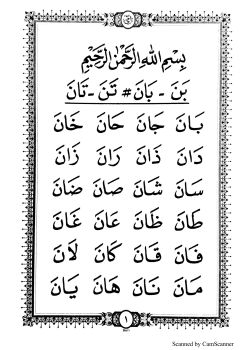 بِسْمِ اللهِ الرَّحْمٰنِ الرَّحِيْمِ
بَنَ - بَانَ # تَنَ - تَانَ
بَانَ جَانَ حَانَ خَانَ
دَانَ ذَانَ رَانَ زَانَ
سَانَ شَانَ صَانَ ضَانَ
طَانَ ظَانَ عَانَ غَانَ
فَانَ قَانَ كَانَ لَانَ
مَانَ نَانَ هَانَ يَانَ
١
Scanned by CamScanner